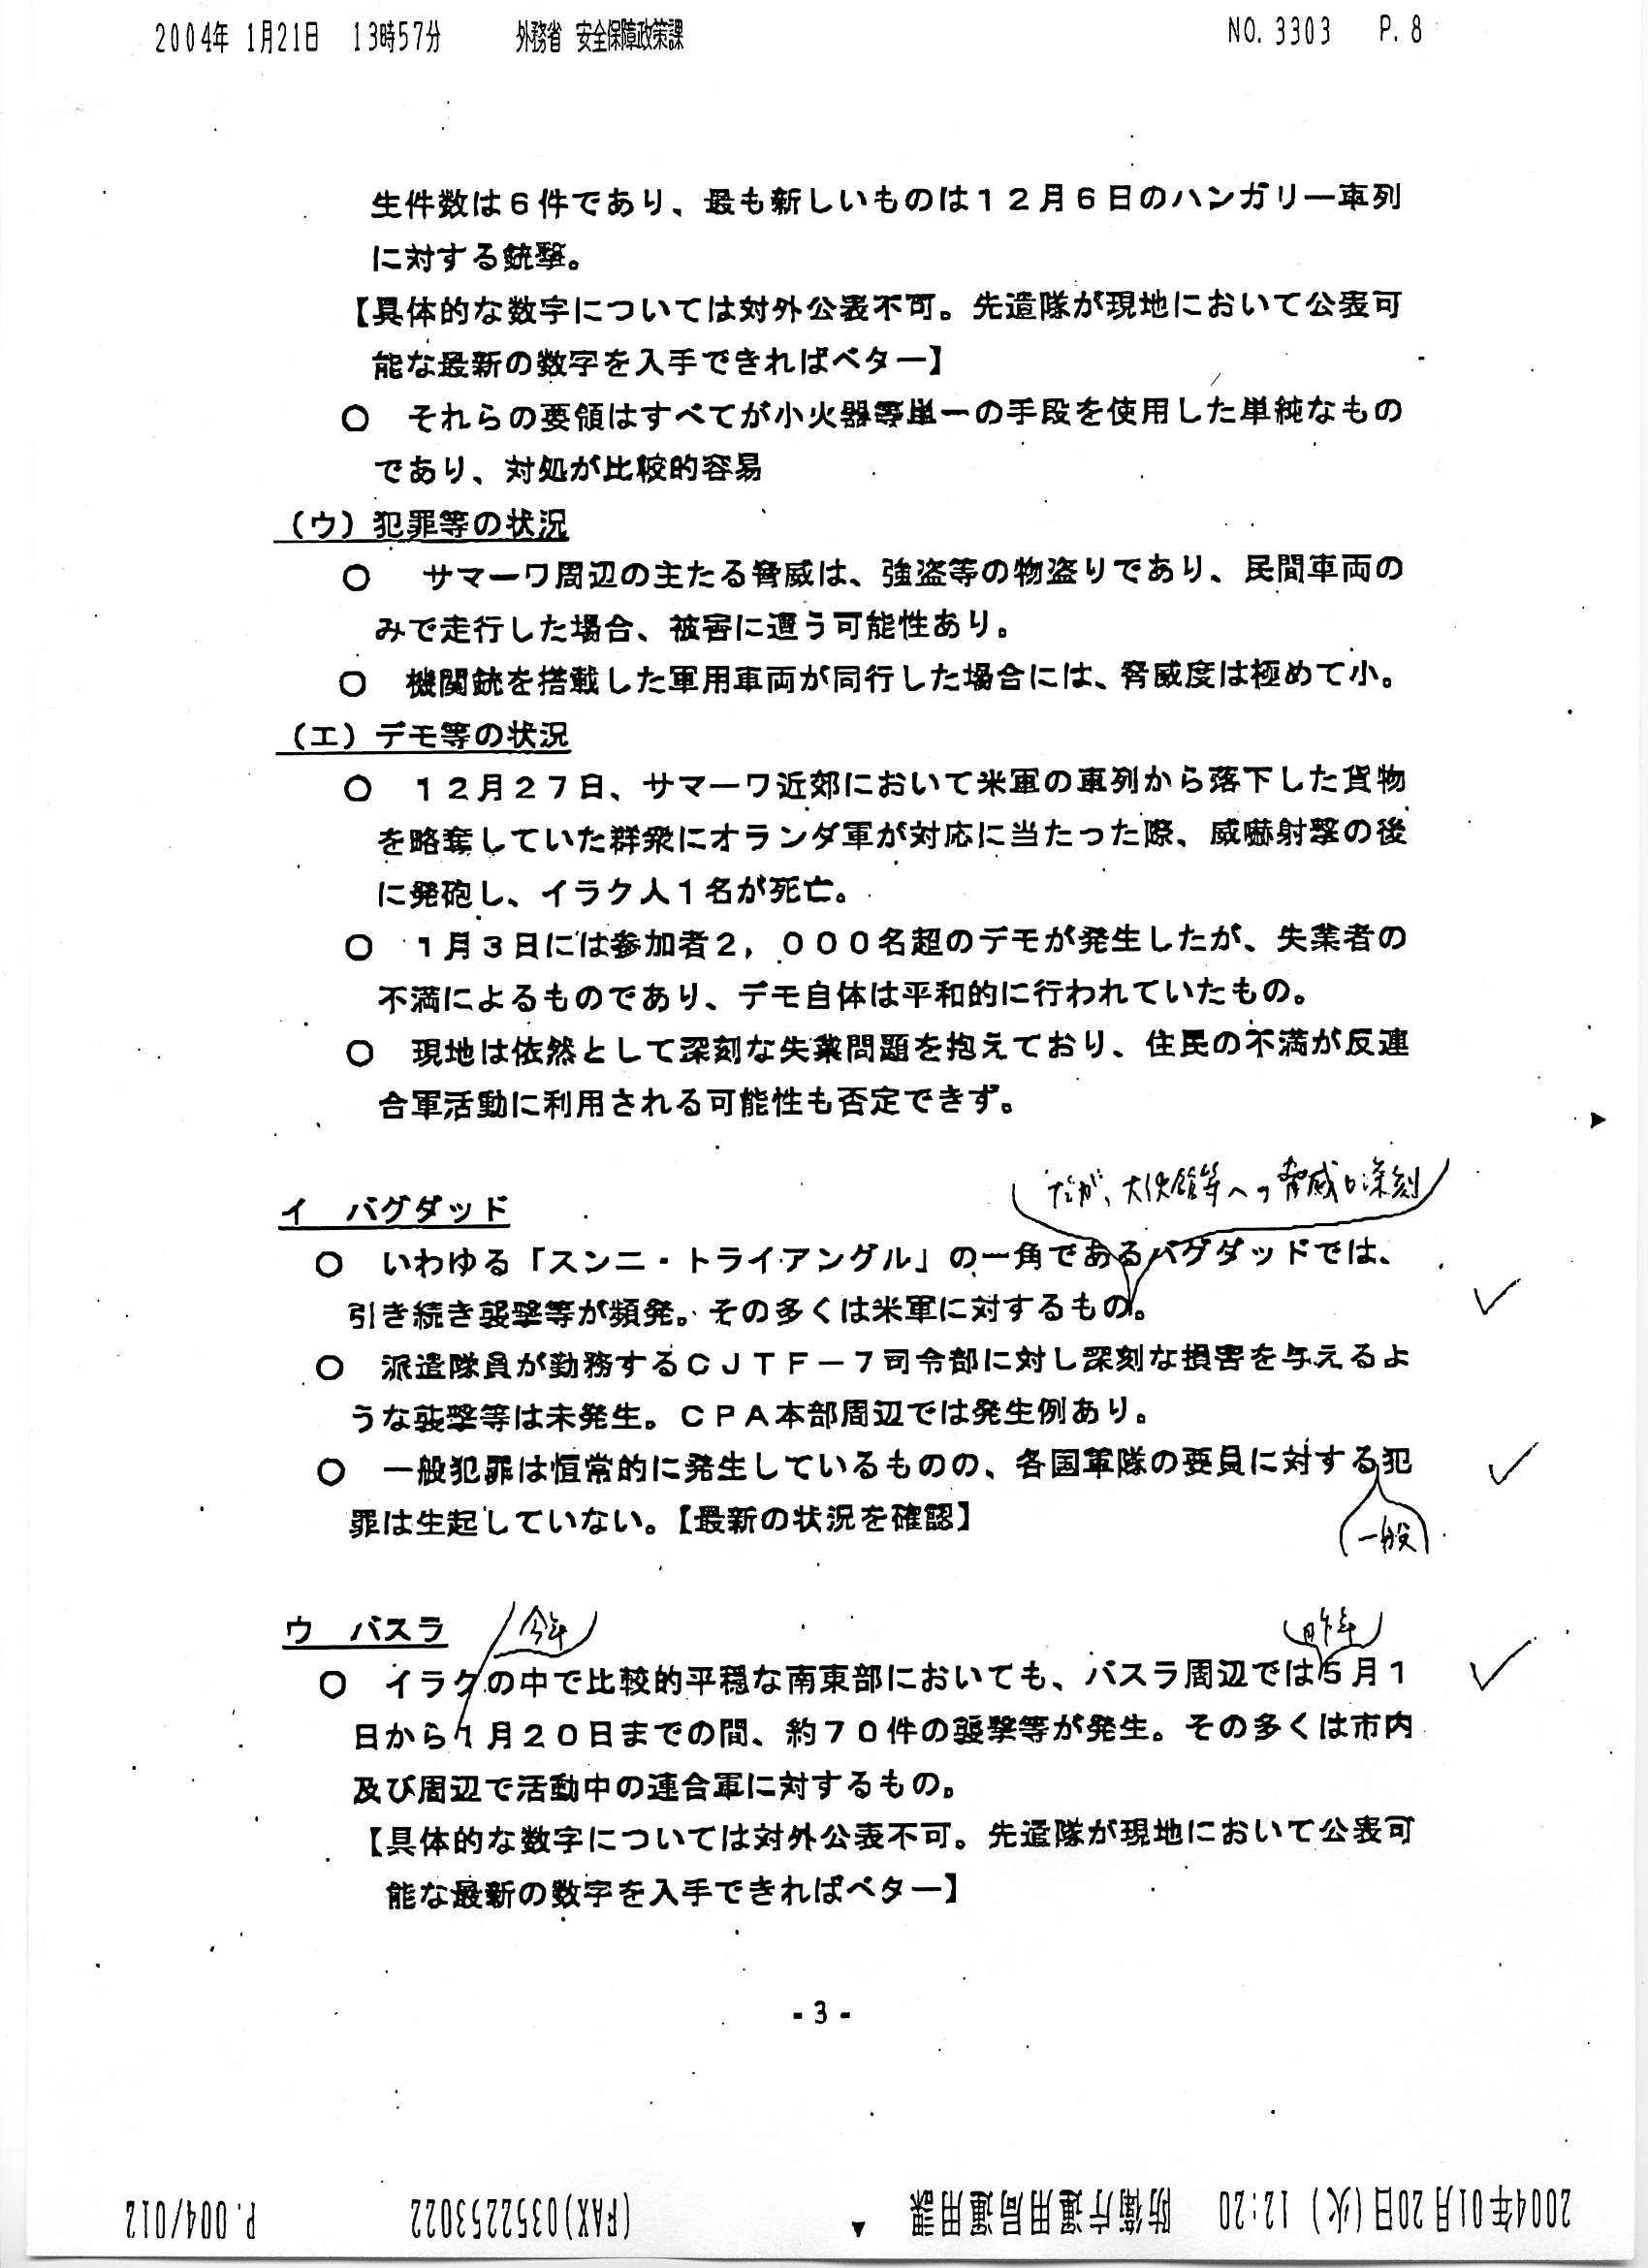 2004年 1月21日 13時57分 外務省 安全保障政策課 NO. 3303 P. 8
生件数は6件であり、最も新しいものは12月6日のハンガリー車列
に対する銃撃。
【具体的な数字については対外公表不可。先遣隊が現地において公表可
能な最新の数字を入手できればベター】
○ それらの要領はすべてが小火器等単一の手段を使用した単純なもの
であり、対処が比較的容易
（ウ）犯罪等の状況
○ サマーワ周辺の主たる脅威は、強盗等の物盗りであり、民間車両の
みで走行した場合、被害に遭う可能性あり。
○ 機関銃を搭載した軍用車両が同行した場合には、脅威度は極めて小。
（エ）デモ等の状況
○ 12月27日、サマーワ近郊において米軍の車列から落下した貨物
を略奪していた群衆にオランダ軍が対応に当たった際、威嚇射撃の後
に発砲し、イラク人1名が死亡。
○ 1月3日には参加者2，000名超のデモが発生したが、失業者の
不満によるものであり、デモ自体は平和的に行われていたもの。
○ 現地は依然として深刻な失業問題を抱えており、住民の不満が反連
合軍活動に利用される可能性も否定できず。
だが、大使館等への脅威も深刻
イ バグダッド
○ いわゆる「スンニ・トライアングル」の一角であるバグダッドでは、
引き続き襲撃等が頻発。その多くは米軍に対するもの。
○ 派遣隊員が勤務するCJTF－7司令部に対し深刻な損害を与えるよ
うな襲撃等は未発生。CPA本部周辺では発生例あり。
○ 一般犯罪は恒常的に発生しているものの、各国軍隊の要員に対する犯
罪は生起していない。【最新の状況を確認】
一般
ウ バスラ
今年 昨年
○ イラクの中で比較的平穏な南東部においても、バスラ周辺では5月1
日から1月20日までの間、約70件の襲撃等が発生。その多くは市内
及び周辺で活動中の連合軍に対するもの。
【具体的な数字については対外公表不可。先遣隊が現地において公表可
能な最新の数字を入手できればベター】
- 3 -
2004年01月20日(火) 12:20 防衛庁運用局運用課 (FAX)0352253022 P.004/012